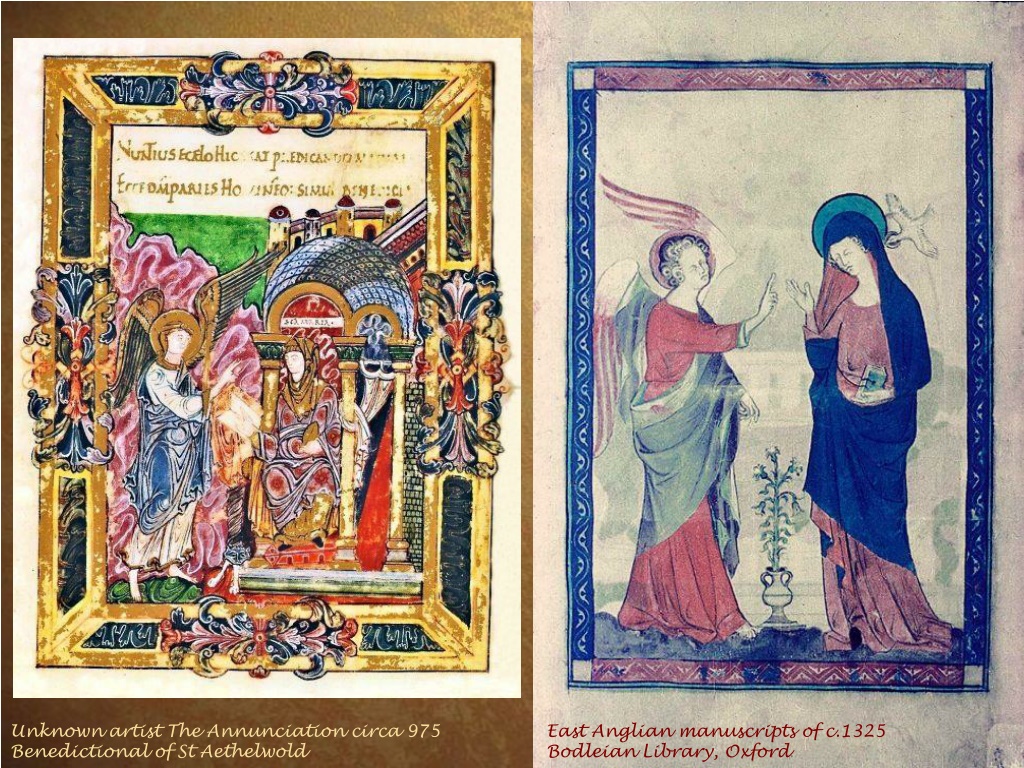 NUNTIUS E CÆLO HIC
ECCE DM PARIES HO
SCA MARIA
Unknown artist The Annunciation circa 975
Benedictional of St Aethelwold
East Anglian manuscripts of c.1325
Bodleian Library, Oxford